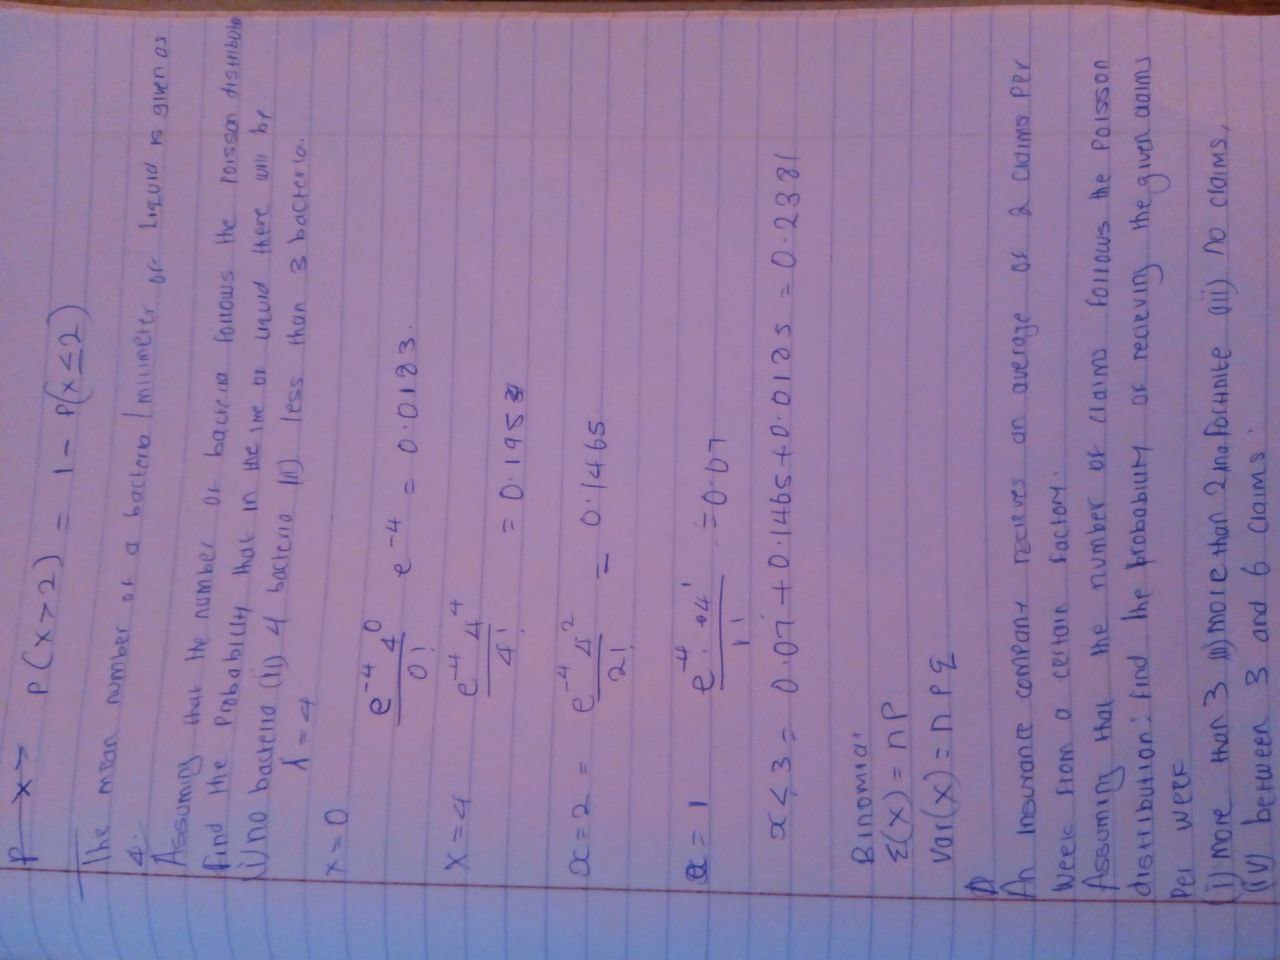 P x >
P(x>2) = 1 - P(x≤2)
The mean number of a bacteria / milimeter of Liquid is given as
4.
Assuming that the number of bacteria follows the Poisson distributio
find the Probability that in the 1ml of liquid there will be
(i) no bacteria (ii) 4 bacteria (iii) less than 3 bacteria.
λ = 4
x = 0
e^-4 4^0 / 0! e^-4 = 0.0183.
x = 4 e^-4 4^4 / 4! = 0.1954
x = 2 = e^-4 4^2 / 2! = 0.1465
x = 1 e^-4 . 4^1 / 1! = 0.07
x < 3 = 0.07 + 0.1465 + 0.0185 = 0.2381
Binomial
E(x) = n P
Var(x) = n P q
An Insurance company recieves an average of 2 claims per
Week from a certain factory.
Assuming that the number of claims follows the Poisson
distribution: find the probability of recieving the given claims
Per week
(i) more than 3 (ii) more than 2 in a fortnite (iii) no claims,
(iv) between 3 and 6 claims.